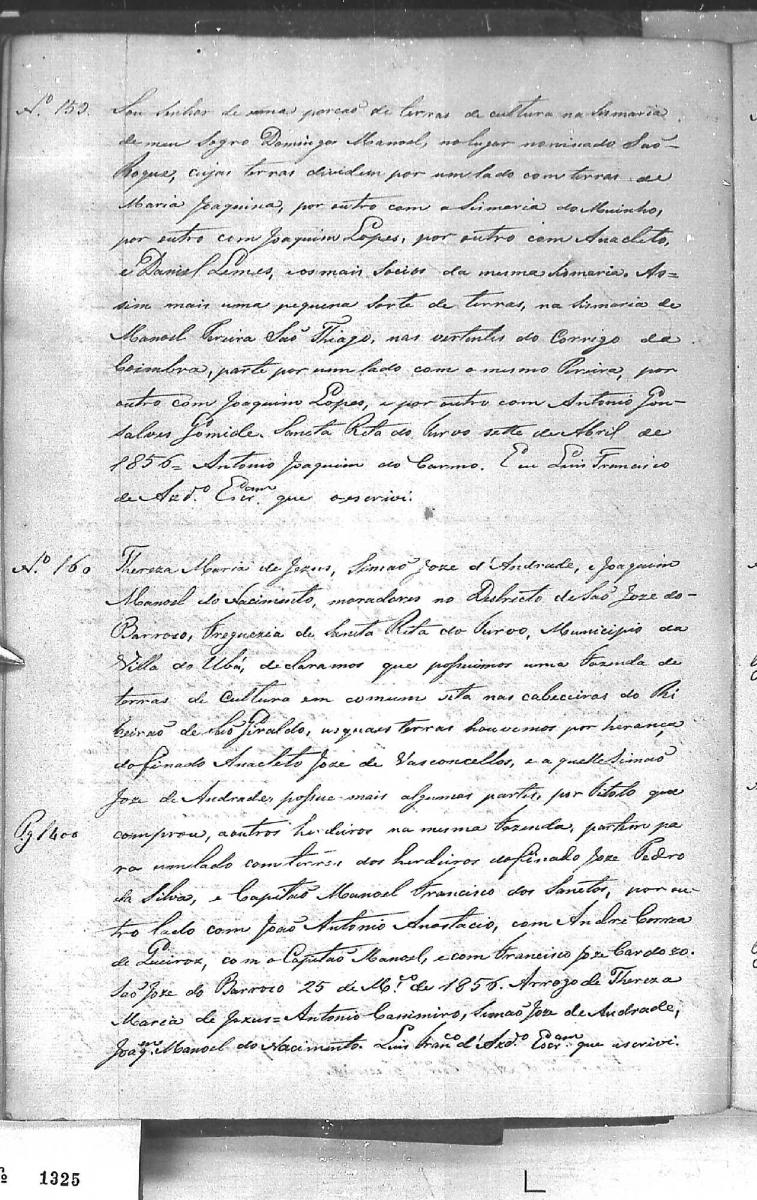 Nº. 159. Sou senhor de uma porcaõ de terras de cultura na Sismaria
de meu Sogro Domingos Manoel, no lugar nominado Saõ
Roque, cujas terras dividem por um lado com terras de
Maria Joaquina, por outro com a Sismaria do Muinho,
por outro com Joaquim Lopes, por outro com Anacleto,
e Daniel Lemes, e os mais socios da mesma Sismaria. As=
sim mais uma pequena sorte de terras, na Sismaria de
Manoel Pereira Saõ Thiago, nas vertentes do Corrigo da
Coimbra, parte por um lado com o mesmo Pereira, por
outro com Joaquim Lopes, e por outro com Antonio Gon-
salves Gomide. Sancta Rita do Turvo sette de Abril de
1856= Antonio Joaquim do Carmo. E eu Luis Francisco
de Azdº. Escram. que o escrivi.
Nº. 160 Thereza Maria de Jezus, Simaõ Joze d'Andrade, e Joaquim
Manoel do Nacimento, moradores no Destricto de Saõ Joze do-
Barrozo, Freguezia de Sancta Rita do Turvo, Municipio da
Villa do Ubá, declaramos que possuimos uma Fazenda de
terras de Cultura em comum sita nas cabeceiras do Ri
beiraõ de Saõ Giraldo, as quaes terras houvemos por herança
do finado Anacleto Joze de Vasconcellos, e aquelle Simaõ
Joze de Andrade, possue mais algumas partes, por Titolo que
Pg 1400 comprou, a outros herdeiros na mesma Fazenda, partem pa
ra um lado com terras dos herdeiros do finado Joze Pedro
da Silva, e Capitaõ Manoel Francisco dos Sanctos, por ou
tro lado com Joaõ Antonio Anastacio, com Andre Correa
de Queiroz, com o Capitaõ Manoel, e com Francisco Joze Cardozo.
Saõ Joze do Barrozo 25 de Mço. de 1856. Arrogo de Thereza
Maria de Jezus= Antonio Casimiro, Simaõ Joze de Andrade,
Joaqm. Manoel do Nacimento. Luis Franco. d'Azdº. Escram. que escrivi.
1325